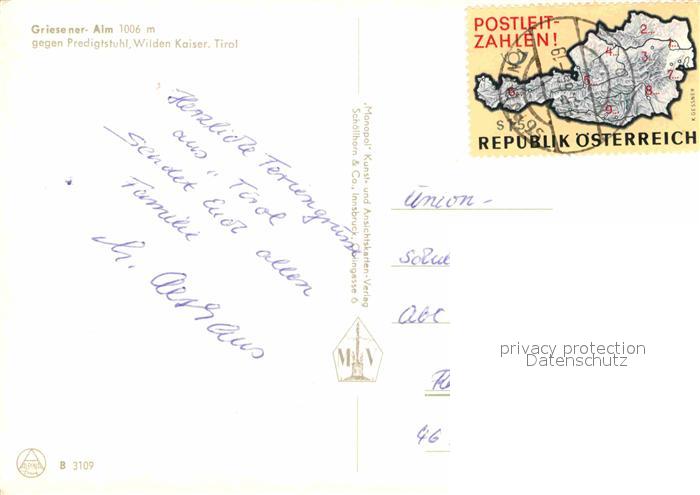 Griesener- Alm 1006 m
gegen Predigtstuhl, Wilden Kaiser. Tirol
POSTLEIT-
ZAHLEN!
2...
4...
3...
1...
7...
5...
6...
8...
9...
K. GESSNER
REPUBLIK ÖSTERREICH
Herzliche Feriengrüsse
aus Tirol
sendet Euch allen
Familie
„Monopol" Kunst- und Ansichtskarten-Verlag
Schöllhorn & Co., Innsbruck,
M V
Union -
Abt
46
privacy protection
by Danvos
ALPINA
B 3109